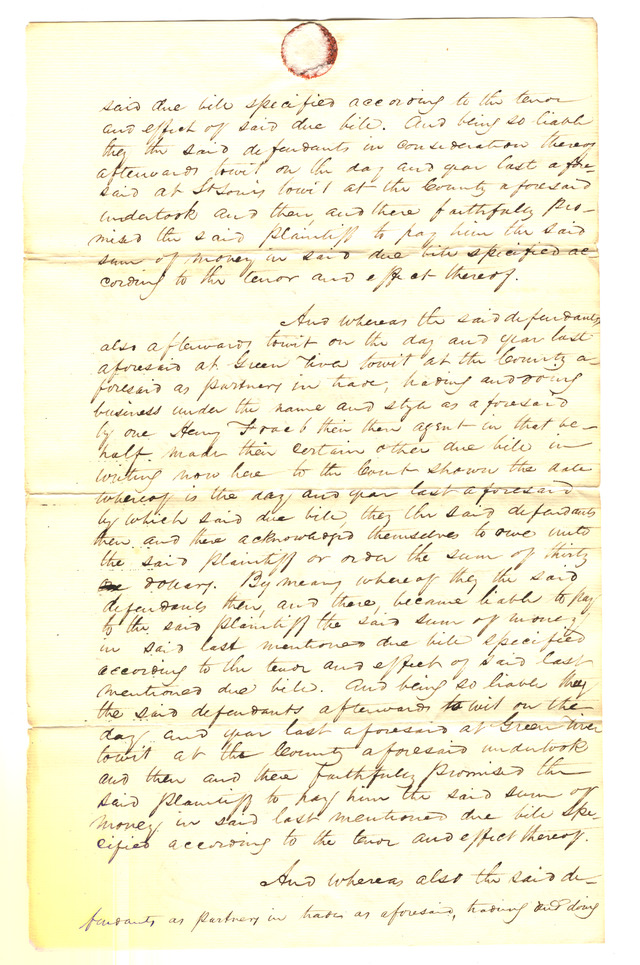 said due bill specified according to the tenor
and effect of said due bill. And being so liable
they the said defendants in consideration thereof
afterwards towit on the day and year last afore-
said at St Louis towit at the County aforesaid
undertook and then and there faithfully pro-
mised the said plaintiff to pay him the said
sum of money in said due bill specified ac-
cording to the tenor and effect thereof.
And whereas the said defendants
also afterwards towit on the day and year last
aforesaid at Green River towit at the County a-
foresaid as partners in trade, trading and doing
business under the name and style as aforesaid
by one Henry Fraeb their then agent in that be-
half made their certain other due bill in
writing now here to the Court shown the date
whereof is the day and year last aforesaid
by which said due bill, they the said defendants
then and there acknowledged themselves to owe unto
the said plaintiff or order the sum of thirty
dollars. By means whereof they the said
defendants then, and there, became liable to pay
to the said plaintiff the said sum of money
in said last mentioned due bill specified
according to the tenor and effect of said last
mentioned due bill. And being so liable they
the said defendants afterwards to wit on the
day and year last aforesaid at Green River
towit at the County aforesaid undertook
and then and there faithfully promised the
said plaintiff to pay him the said sum of
money in said last mentioned due bill spe-
cified according to the tenor and effect thereof.
And whereas also the said de-
fendants as partners in trade as aforesaid, trading and doing